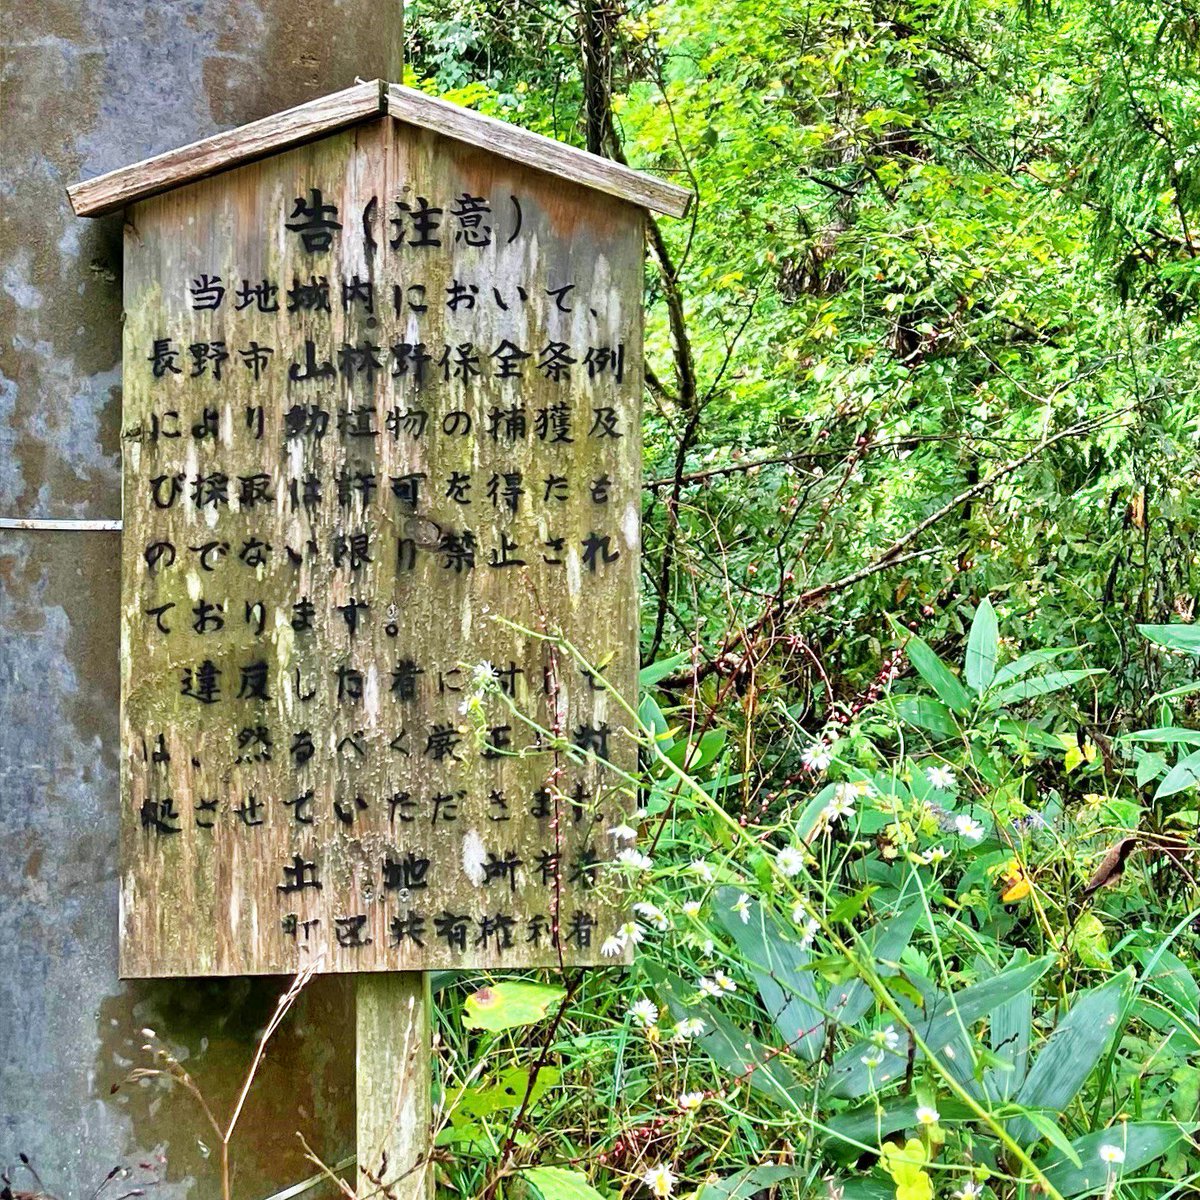 告(注意)
当地域内において、
長野市山林野保全条例
により動植物の捕獲及
び採取は許可を得たも
のでない限り禁止され
ております。
違反した者に対して
は、然るべく厳正に対
処させていただきます。
土地所有者
町区共有権利者